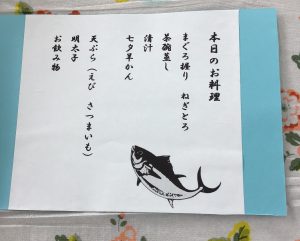 本日のお料理
まぐろ握り　ねぎとろ
茶碗蒸し
清汁
七夕羊かん
天ぷら（えび　さつまいも）
明太子
お飲み物